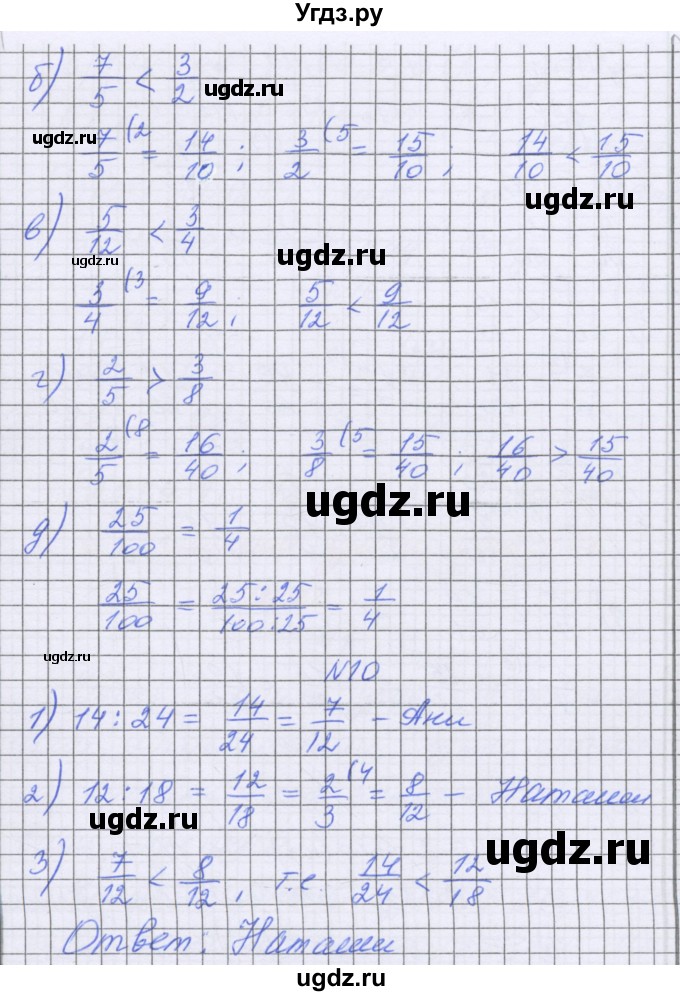 Угдз.ру
б) 7/5 < 3/2 ugdz.ru
ugdz.ru 7/5 (2 = 14/10 ; 3/2 (5 = 15/10 ; 14/10 < 15/10
ugdz.ru
в) 5/12 < 3/4
ugdz.ru ugdz.ru
3/4 (3 = 9/12 ; 5/12 < 9/12
г) 2/5 > 3/8
2/5 (8 = 16/40 ; 3/8 (5 = 15/40 ; 16/40 > 15/40
ugdz.ru
д) 25/100 = 1/4
25/100 = 25:25/100:25 = 1/4
ugdz.ru
N10
1) 14 : 24 = 14/24 = 7/12 - Ани
2) 12 : 18 = 12/18 = 2/3 (4 = 8/12 - Наташи
ugdz.ru ugdz.ru
3) 7/12 < 8/12 , т.е. 14/24 < 12/18
Ответ: Наташи
ugdz.ru